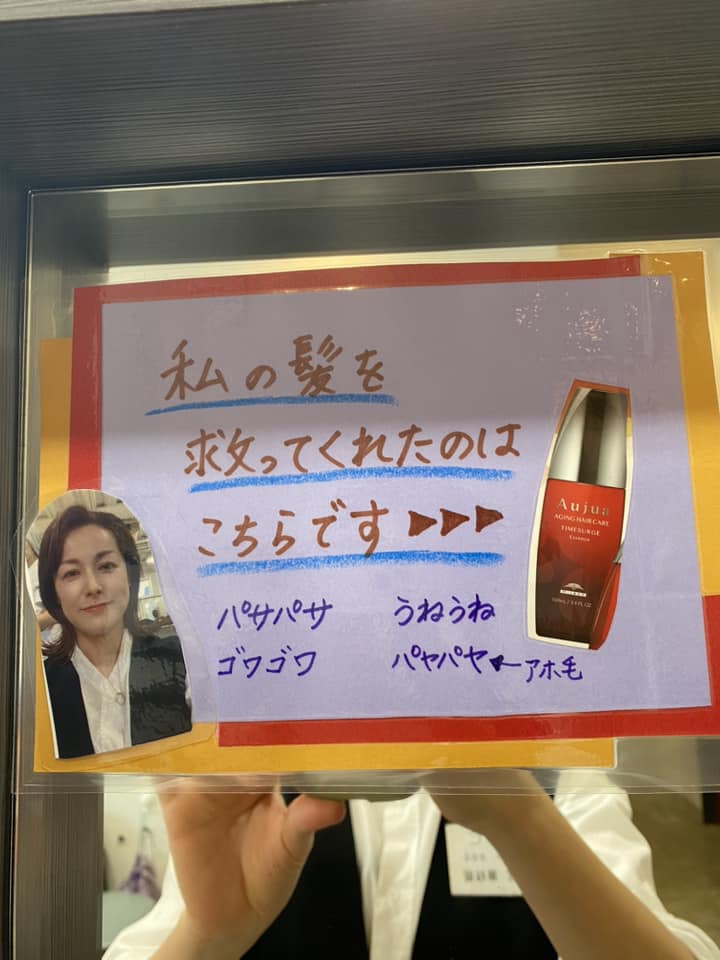 私の髪を
救ってくれたのは
こちらです▶▶▶
パサパサ うねうね
ゴワゴワ パヤパヤ←アホ毛
Aujua
AGING HAIR CARE
TIMESURGE
Essence